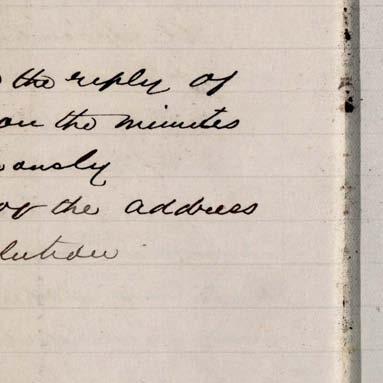 the reply of
on the minutes
ously
of the address
lution